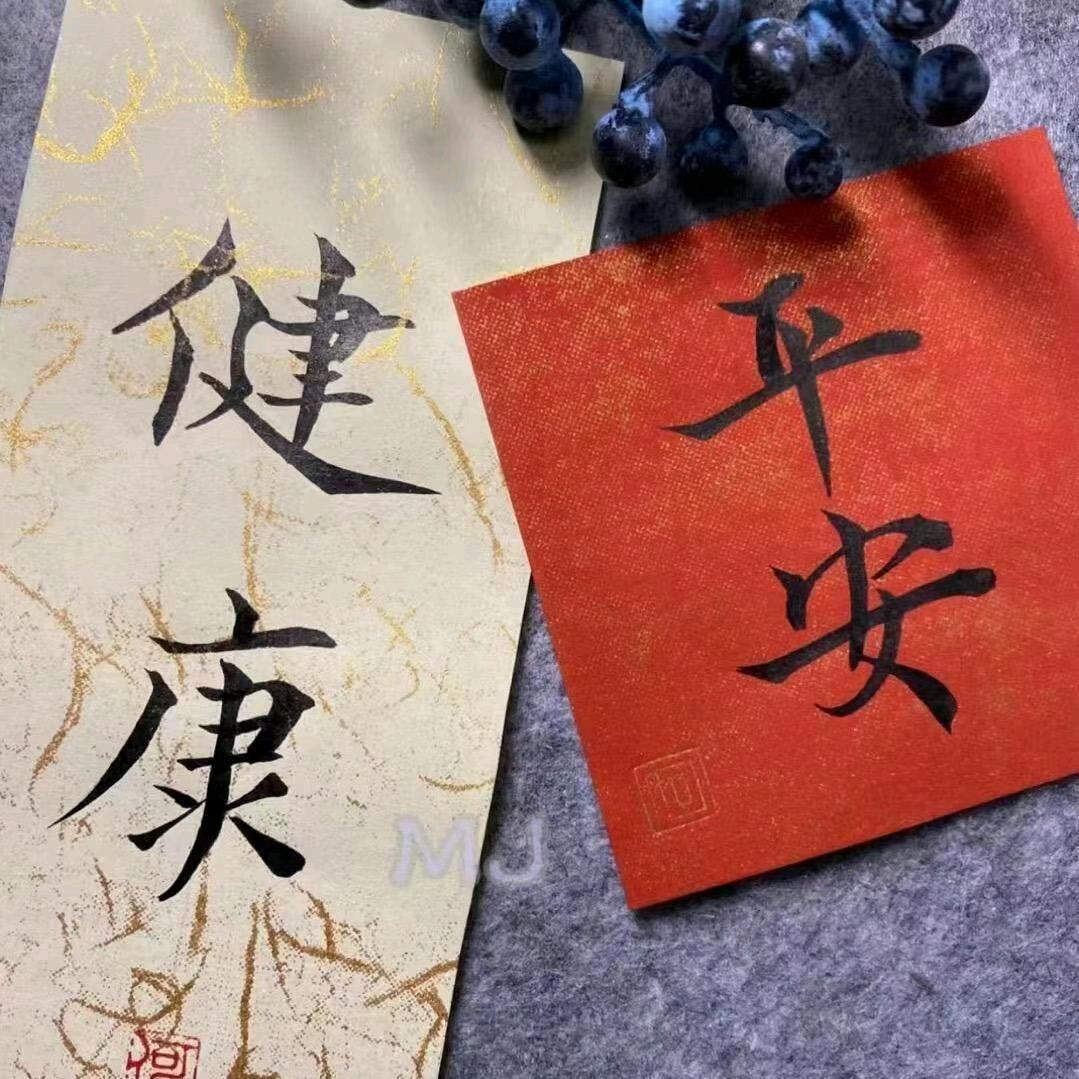 健康
平安
MJ